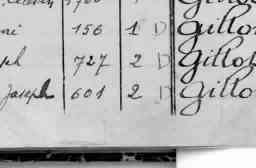 ni 156 1 D Gillot
ph 727 2 D Gillot
Joseph 601 2 D Gillo